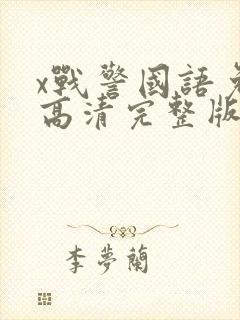 x戰警國語免
高清完整版
李夢蘭